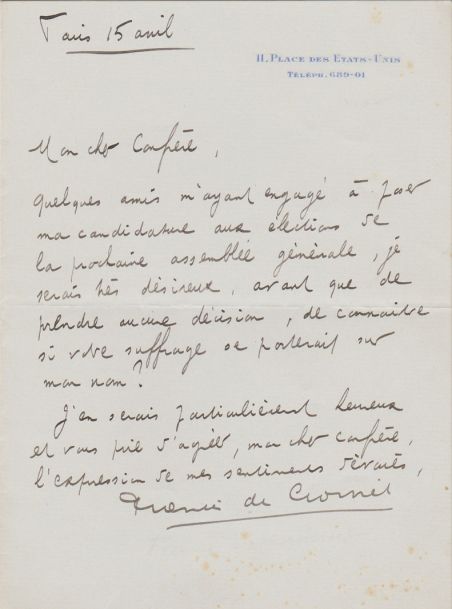 Paris 15 avril
11, PLACE DES ETATS-UNIS
TÉLÉPH. 689-01
Mon cher Confrère,
Quelques amis m'ayant engagé à poser
ma candidature aux élections de
la prochaine assemblée générale, je
serais très désireux, avant que de
prendre aucune décision, de connaitre
si votre suffrage se porterait sur
mon nom?
J'en serais particulièrement heureux
et vous prie d'agréer, mon cher confrère,
l'expression de mes sentiments dévoués,
Francis de Croisset